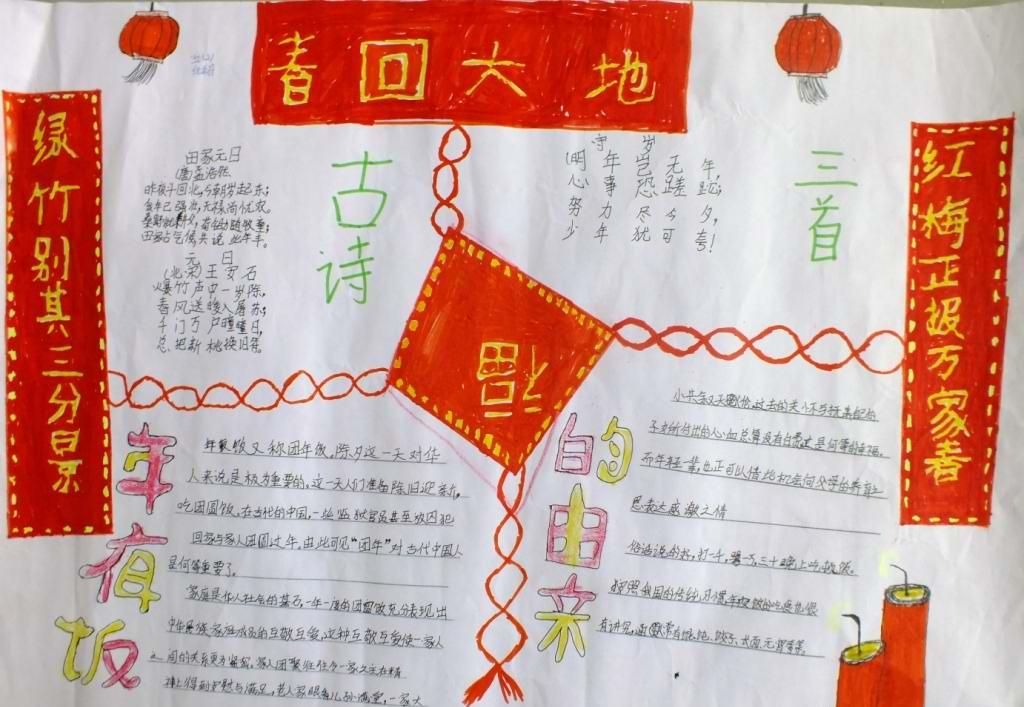 春回大地
绿竹别其三分景
红梅正报万家春
古诗
三首
田家元日
(唐)孟浩然
昨夜斗回北,今朝岁起东;
我年已强壮,无禄尚忧农。
桑野就耕父,荷锄随牧童;
田家占气候,共说此年丰。
元日
(北宋)王安石
爆竹声中一岁除,
春风送暖入屠苏;
千门万户曈曈日,
总把新桃换旧符。
守岁
(明年岂无年,
心事恐蹉跎;
努力尽今夕,
少年犹可夸!
福
年夜饭
的由来
年夜饭又称团年饭,除夕这一天对华
人来说是极为重要的,这一天人们准备除旧迎新,
吃团圆饭,在古代的中国,一些监狱官员甚至放囚犯
回家与家人团圆过年,由此可见“团年”对古代中国人
是何等重要了。
家庭是华人社会的基石,一年一度的团圆饭充分表现出
中华民族家庭成员的互敬互爱,这种互敬互爱使一家人
之间的关系更为紧密。家人团聚往往令一家之主在精
神上得到安慰与满足,老人家眼看儿孙满堂,一家大
小共叙天伦,过去的关怀与抚养
子女所付出的心血总算没有白费,这是何等的幸福。
而年轻一辈,也正可以借此机会向父母的养育之
恩表达感激之情
俗话说的好,打一千,骂一万,三十晚上吃顿饭。
按照我国的传统习惯,年夜饭的吃是也很
有讲究,通常有馄饨、饺子、长面、元宵等等。